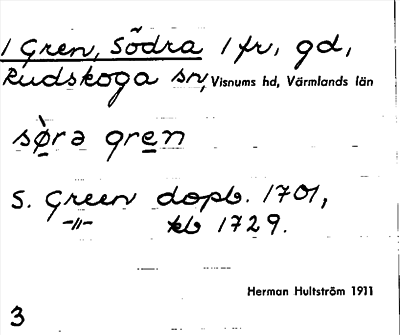 1 Gren, Södra 1 fr, gd,
Rudskoga sn, Visnums hd, Värmlands län
sø̀rə gren
S. Green dopb. 1701,
-"- kb 1729.
Herman Hultström 1911
3